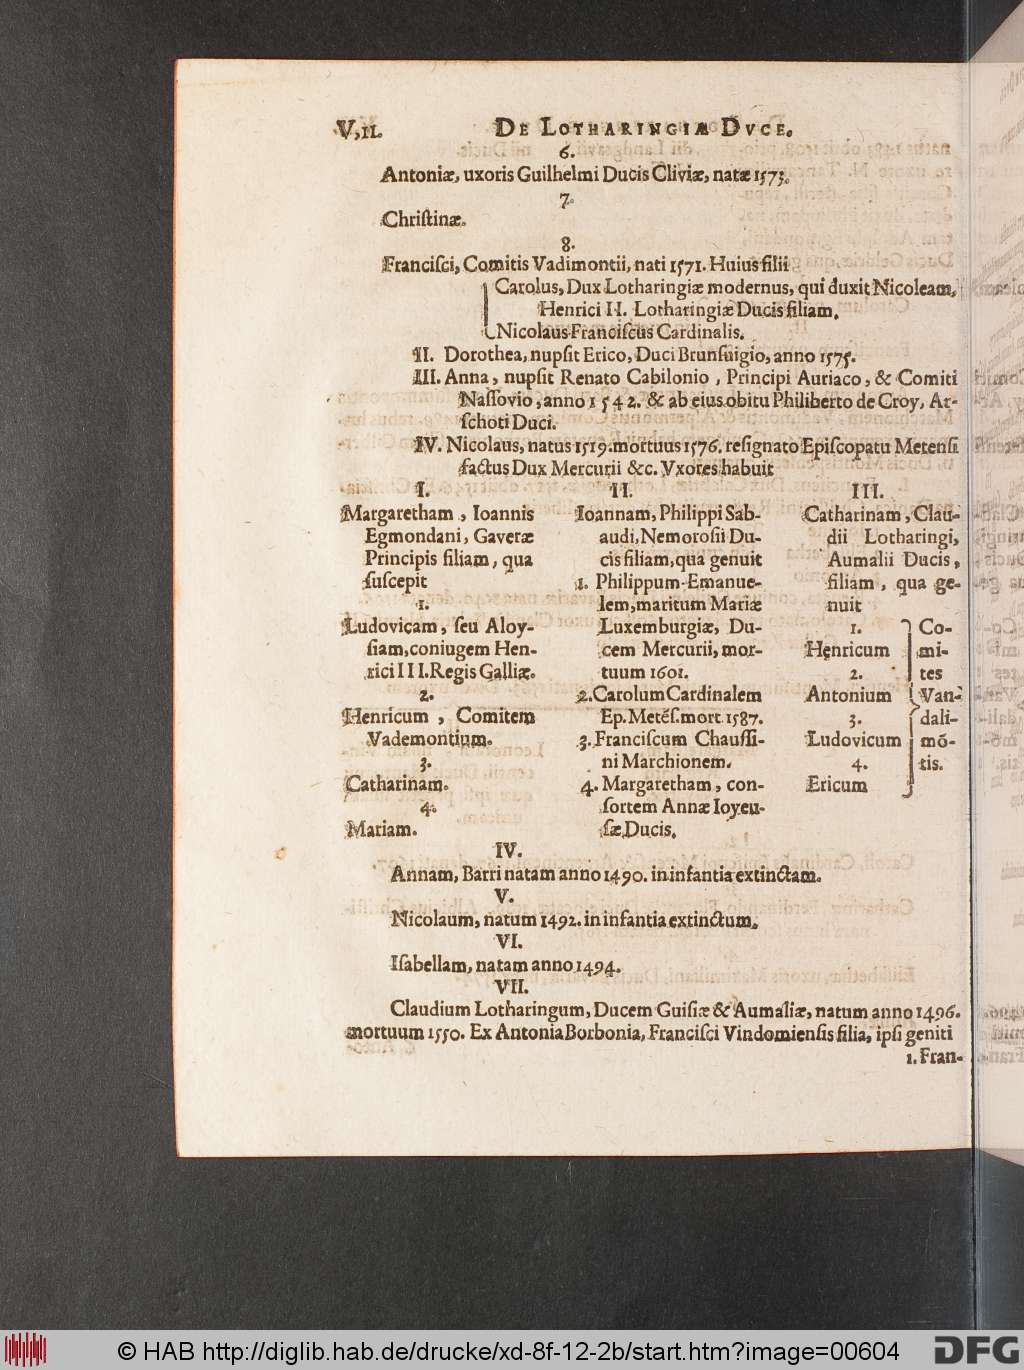 V,II. DE LOTHARINGIÆ DVCE.
6.
Antoniæ, uxoris Guilhelmi Ducis Cliviæ, natæ 1573.
7.
Chriſtinæ.
8.
Franciſci, Comitis Vadimontii, nati 1571. Huius filii
Carolus, Dux Lotharingiæ modernus, qui duxit Nicoleam,
Henrici II. Lotharingiæ Ducis filiam.
Nicolaus Franciſcus Cardinalis.
II. Dorothea, nupſit Erico, Duci Brunſuigio, anno 1575.
III. Anna, nupſit Renato Cabilonio, Principi Auriaco, & Comiti
Naſſovio, anno 1542. & ab eius obitu Philiberto de Croy, Ar-
ſchoti Duci.
IV. Nicolaus, natus 1519. mortuus 1576. reſignato Epiſcopatu Metenſi
factus Dux Mercurii &c. Vxores habuit
I.
Margaretham, Ioannis
Egmondani, Gaveræ
Principis filiam, qua
ſuſcepit
1.
Ludovicam, ſeu Aloy-
ſiam, coniugem Hen-
rici III. Regis Galliæ.
2.
Henricum, Comitem
Vademontium.
3.
Catharinam.
4.
Mariam.
II.
Ioannam, Philippi Sab-
audi, Nemoroſii Du-
cis filiam, qua genuit
1. Philippum-Emanue-
lem, maritum Mariæ
Luxemburgiæ, Du-
cem Mercurii, mor-
tuum 1601.
2. Carolum Cardinalem
Ep. Metẽſ. mort 1587.
3. Franciſcum Chauſſi-
ni Marchionem.
4. Margaretham, con-
ſortem Annæ Ioyeu-
ſæ Ducis.
III.
Catharinam, Clau-
dii Lotharingi,
Aumalii Ducis,
filiam, qua ge-
nuit
1.
Henricum
2.
Antonium
3.
Ludovicum
4.
Ericum
Co-
mi-
tes
Van-
dali-
mõ-
tis.
IV.
Annam, Barri natam anno 1490. in infantia extinctam.
V.
Nicolaum, natum 1492. in infantia extinctum.
VI.
Iſabellam, natam anno 1494.
VII.
Claudium Lotharingum, Ducem Guiſiæ & Aumaliæ, natum anno 1496.
mortuum 1550. Ex Antonia Borbonia, Franciſci Vindomienſis filia, ipſi geniti
1. Fran-
© HAB http://diglib.hab.de/drucke/xd-8f-12-2b/start.htm?image=00604
DFG